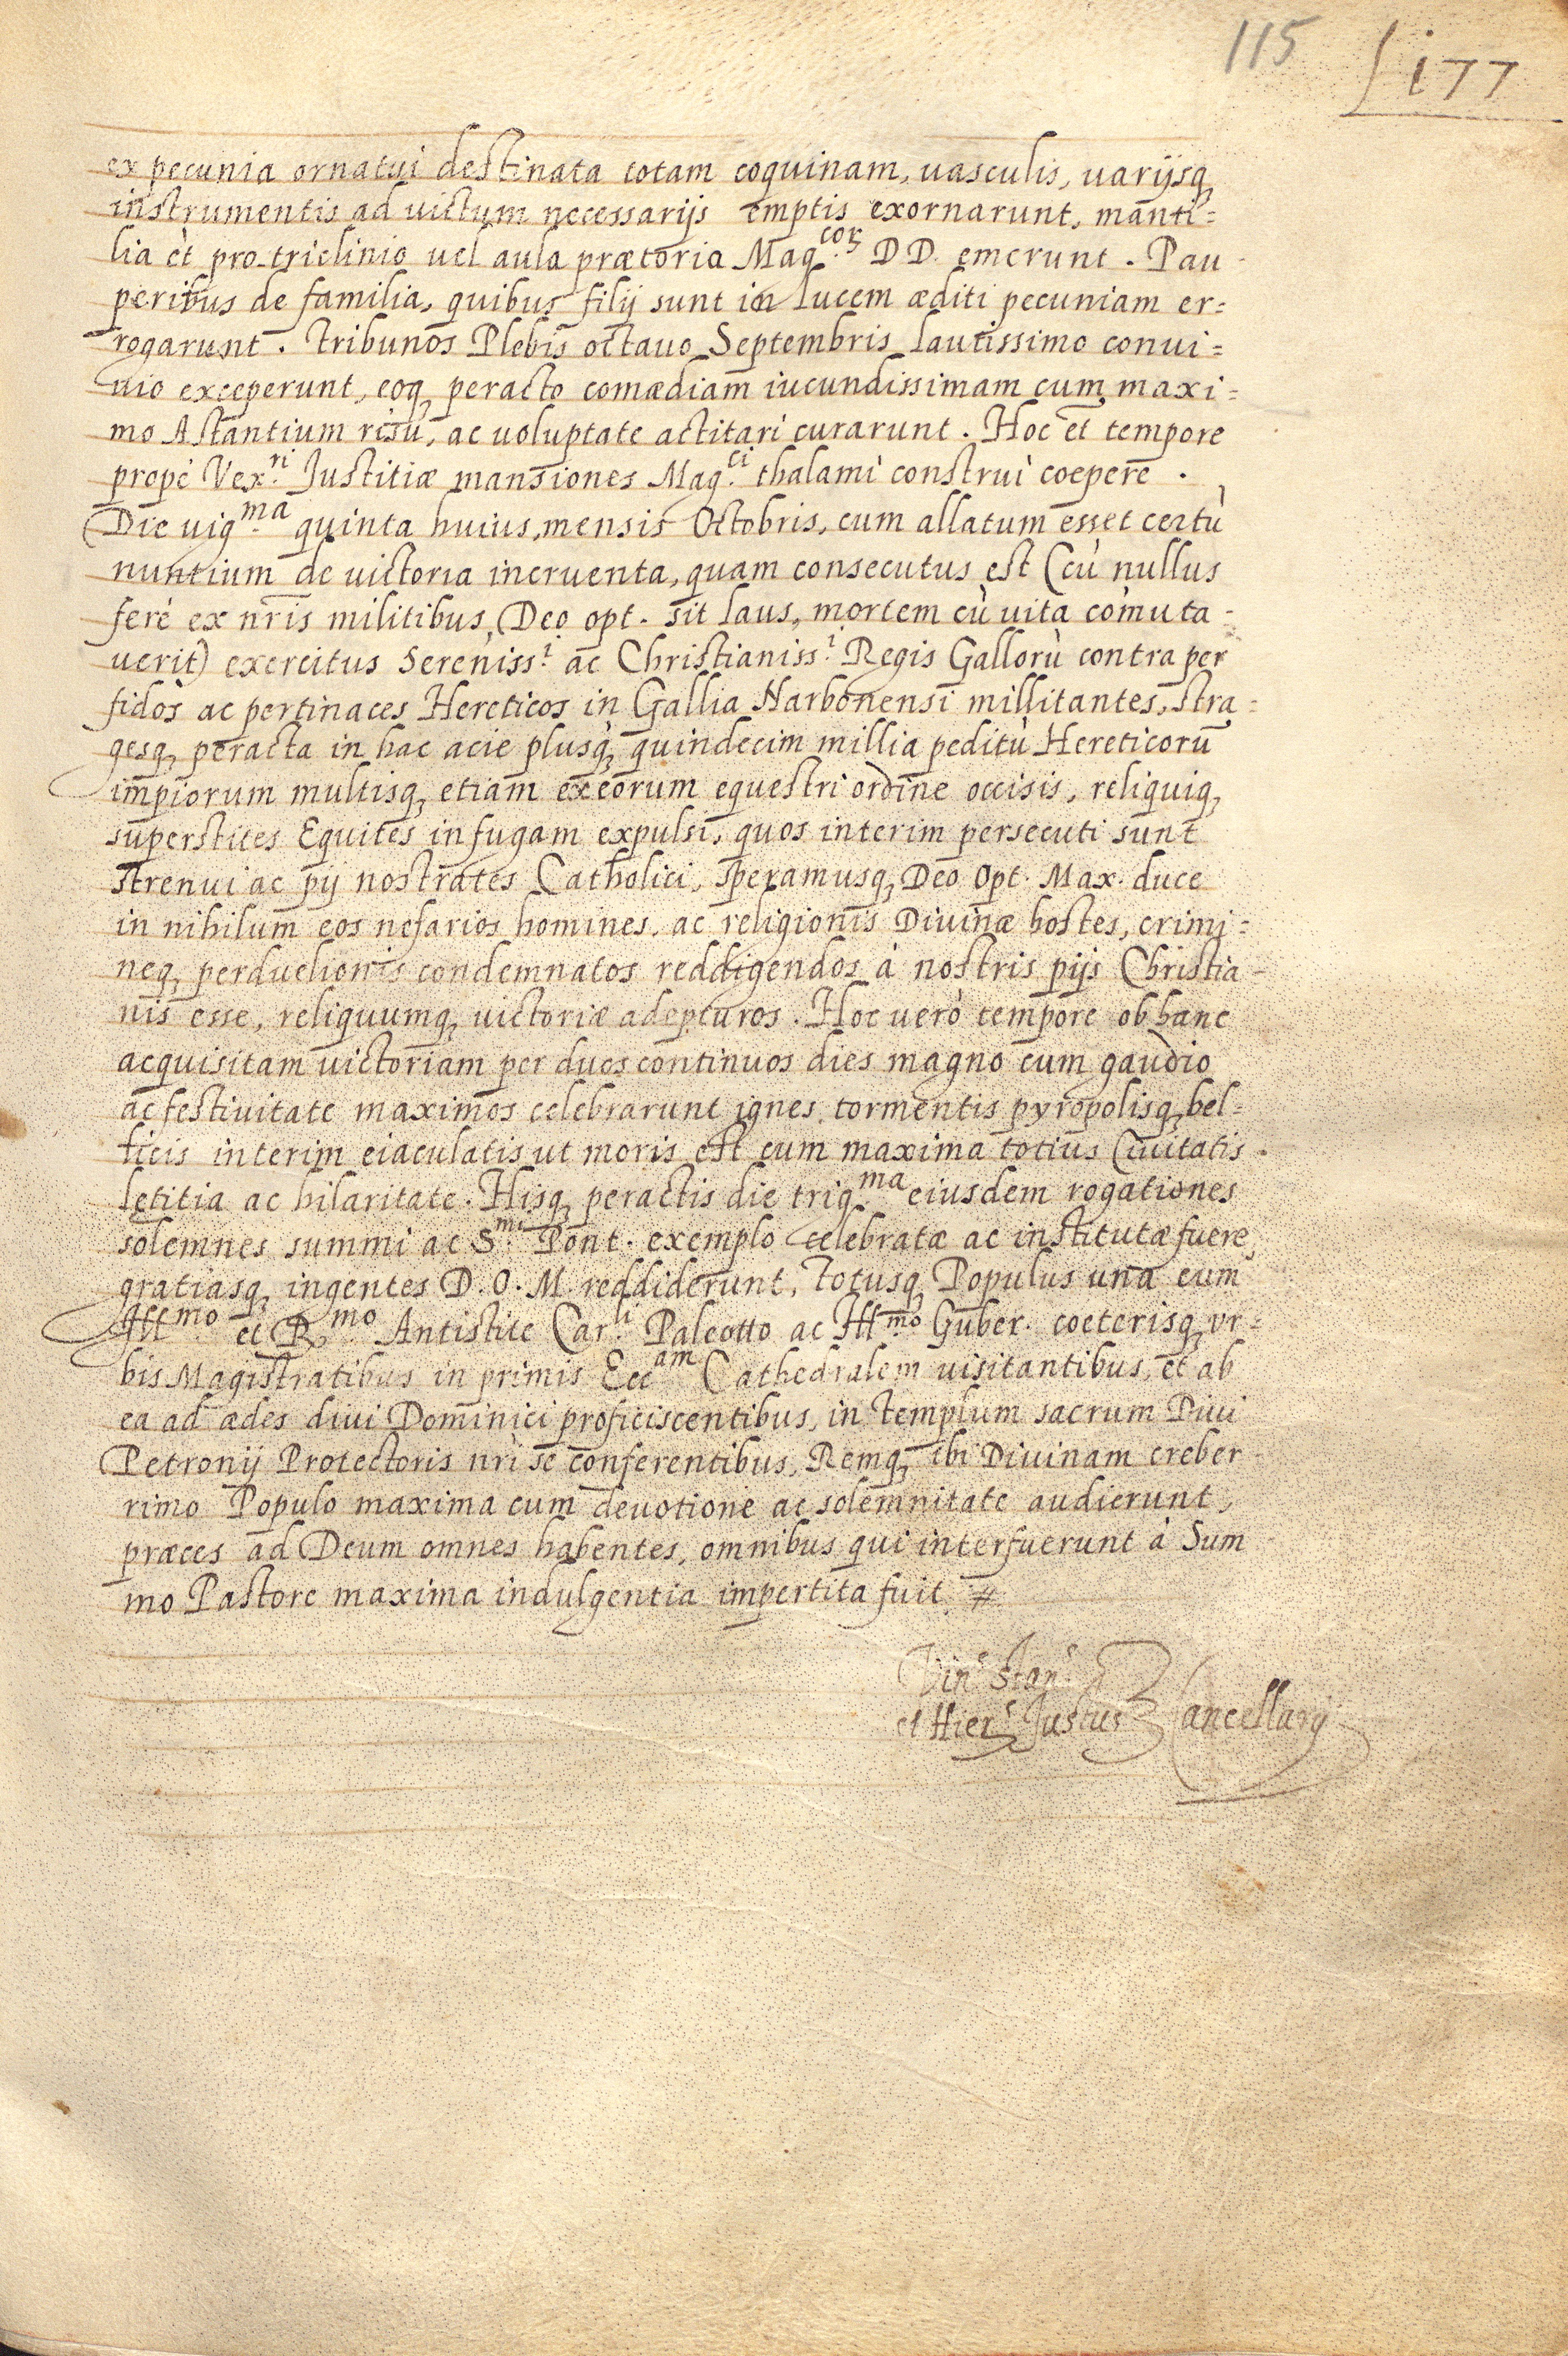 115
177
ex pecunia ornatui destinata totam coquinam, uasculis, uarijsq,
instrumentis ad uictum necessarijs emptis exornarunt, manti=
lia et pro triclinio uel aula prætoria Mag.corꝝ DD. emerunt. Pau-
peribus de familia, quibus filij sunt in lucem æditi pecuniam er=
rogarunt. Tribunos Plebis octauo Septembris lautissimo conui=
uio exceperunt, eoq, peracto comædiam iucundissimam cum maxi=
mo Astantium risu, ac uoluptate actitari curarunt. Hoc et tempore
propè Vex.ri Justitiæ mansiones Mag.ci thalami construi coepere.
Die uig.ma quinta huius mensis Octobris, cum allatum esset certù
nuntium de uictoria incruenta, quam consecutus est (cù nullus
ferè ex nr̃is militibus, Deo opt. sit laus, mortem cù uita còmuta-
uerit) exercitus Sereniss.i ac Christianiss.i Regis Gallorù contra per
fidos ac pertinaces Hereticos in Gallia Narbonensi millitantes, stra=
gesq, peracta in hac acie plusq̀, quindecim millia peditù Hereticorũ
impiorum multisq, etiam ex eorum equestri ordine occisis, reliquiq,
superstites Equites in fugam expulsi, quos interim persecuti sunt
strenui ac pij nostrates Catholici, speramusq, Deo Opt. Max. duce
in nihilum eos nefarios homines, ac religionis Diuinæ hostes, crimi=
neq, perduelionis condemnatos reddigendos à nostris pijs Christia-
nis esse, reliquumq, uictoriæ adepturos. Hoc uerò tempore ob hanc
acquisitam uictoriam per duos continuos dies magno cum gaudio
ac festiuitate maximos celebrarunt ignes, tormentis pyropolisq, bel=
licis interim eiaculatis ut moris est cum maxima totius Ciuitatis
lętitia ac hilaritate. Hisq, peractis die trig.ma eiusdem rogationes
solemnes summi ac S.mi Pont. exemplo celebratæ ac institutæ fuere,
gratiasq, ingentes D. O. M. reddiderunt, Totusq, Populus una cum
Ill.mo et R.mo Antistite Car.li Paleotto ac Ill.mo Guber. coeterisq, vr=
bis Magistratibus in primis Ecc.am Cathedralem uisitantibus, et ab
ea ad ædes diui Dominici proficiscentibus, in templum sacrum Diui
Petronij Protectoris nr̃i se conferentibus, Remq, ibi Diuinam creber-
rimo Populo maxima cum deuotione ac solemnitate audierunt,
præces ad Deum omnes habentes, omnibus qui interfuerunt à Sum
mo Pastore maxima indulgentia impertita fuit. #
Vin.s Stan.s
et Hier.s Justus Cancellarij